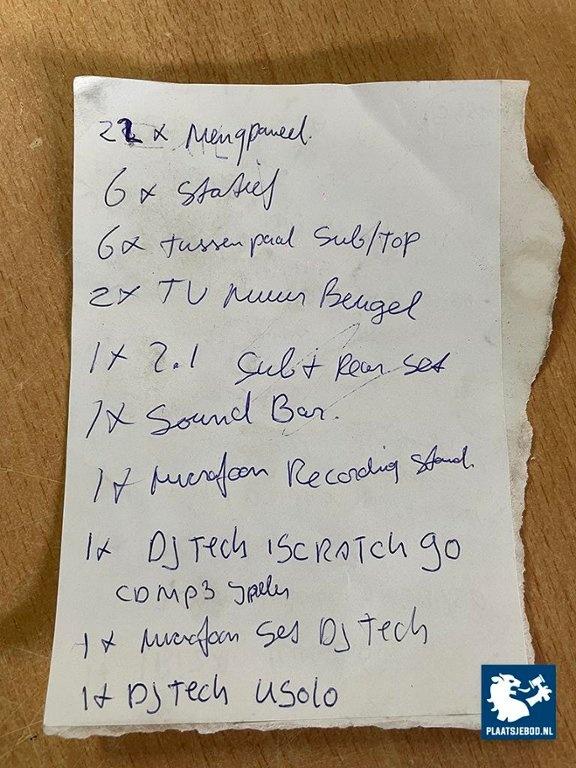 22x Mengpaneel.
6x Statief
6x tussenpaal Sub/TOP
2x TV Muur Beugel
1x 2.1 Sub + Rear set
1x Sound Bar.
1x Microfoon Recording stand.
1x DJ Tech ISCRATCH go
CDMP3 speler
1x Microfoon Set DJ Tech
1x DJ Tech USolo
PLAATSJEBOD.NL